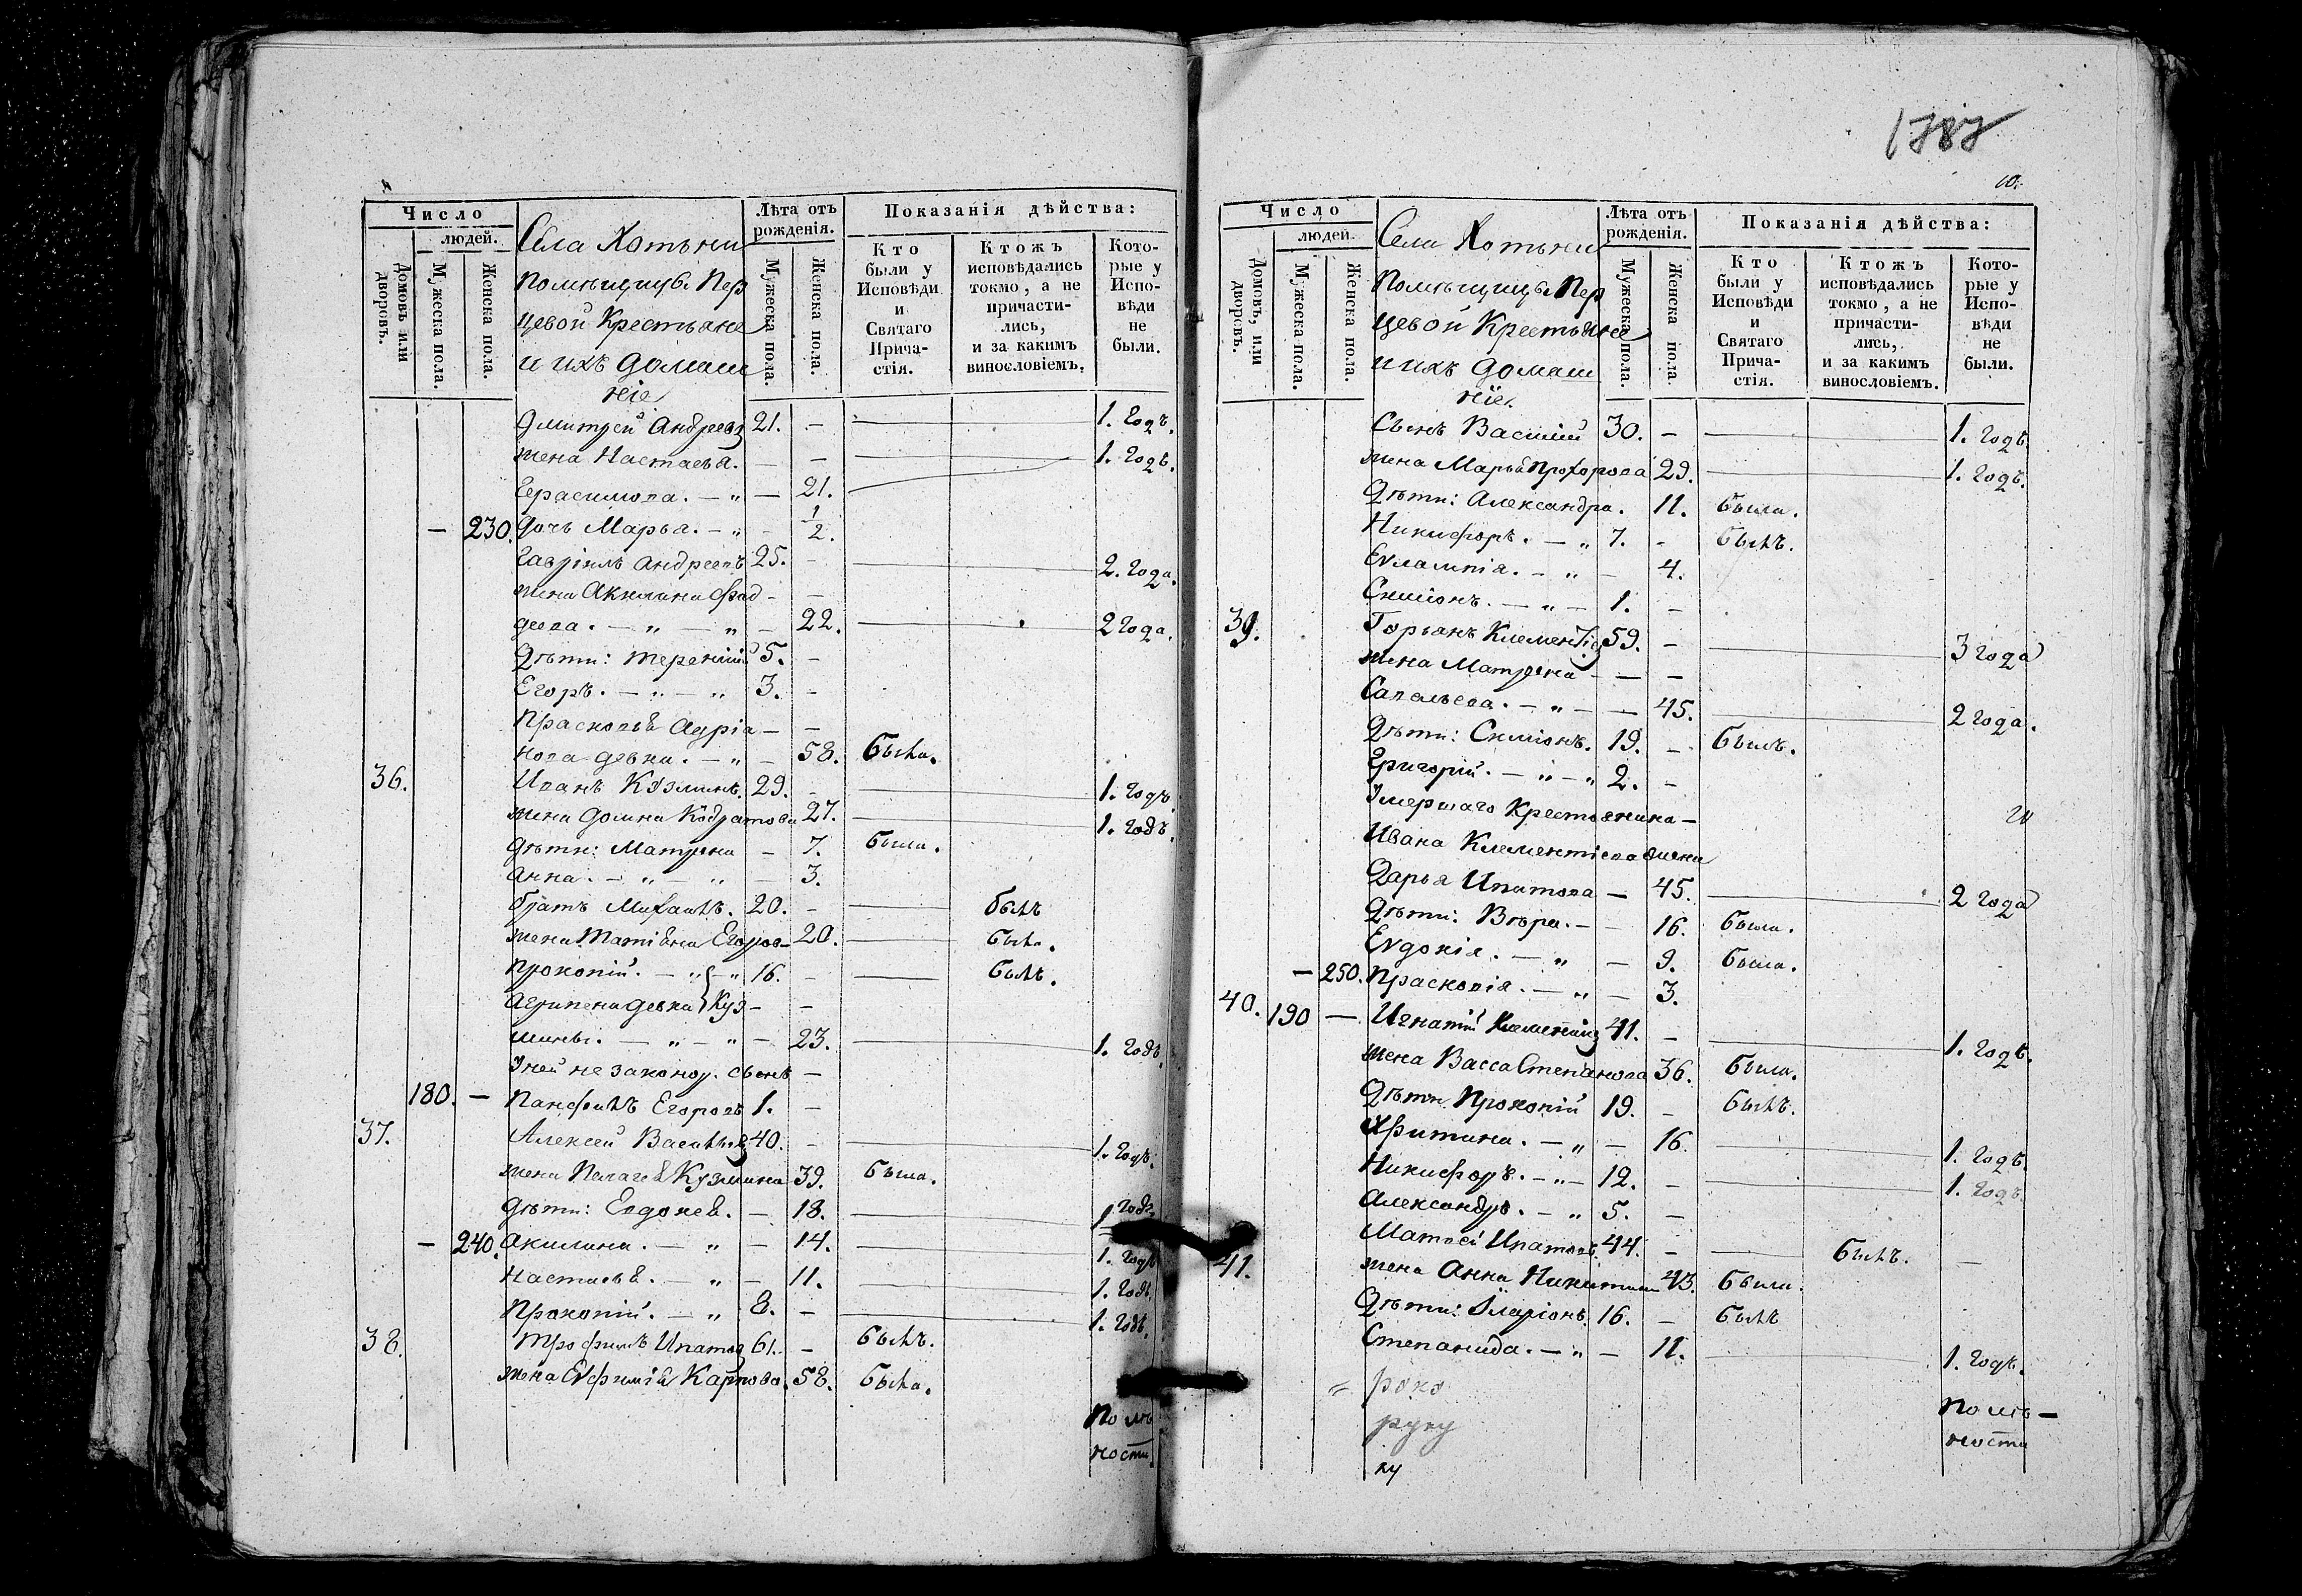 Число
людей.
Домовъ или дворовъ.
Мужеска пола.
Женска пола.
Села Хотьни
помѣщицы Пер
цевой Крестьяне
и ихъ домаш
ніе
Лѣта отъ рожденія.
Мужеска пола.
Женска пола.
Показанія дѣйства:
Кто были у Исповѣди и Святаго Прича- стія.
Ктожъ исповѣдались токмо, а не причасти- лись, и за какимъ винословіемъ.
Кото- рые у Испо- вѣди не были.
Дмитрей Андреевъ 21. – 1. годъ.
жена Настасья. – – 1. годъ.
Герасимова. – „ – 21.
– 230. дочь Марья. – „ – 1/2.
Гавріилъ Андреевъ 25. – 2. года.
жена Акилина Фад – –
деова. – „ – „ – 22. 2 года.
Дѣти: Терентій 5. –
Егоръ. – „ – „ 3. –
Прасковья Адріа – –
нова девка. – „ – 58. была.
36. Иванъ Кузминъ. 29. – 1. годъ.
жена Домна Кодратова 27. 1. годъ.
дѣти: Матрена – 7. была.
Анна. – „ – „ – 3.
братъ Михаилъ. 20. – былъ
жена Татіана Егоров – 20. была.
Прокопій. – „ – „ 16. – былъ.
Агрипена девка Куз – –
мины. – „ – „ – 23. 1. годъ.
У ней не законор. сынъ –
180. – Панфилъ Егоровъ 1. –
37. Алексей Васильев 40. – 1. годъ.
жена Пелагея Кузмина 39. была.
дѣти: Евдокея. – 18. 1 годъ.
– 240. Акилина. – „ – 14. 1. годъ
Настасья. – „ – 11. 1. годъ.
Прокопій. – „ 8. – 1. годъ.
38. Трофимъ Ипатов 61. – былъ.
жена Евфимія Карпова. 58. была.
По лѣ
ности.
1787
10.
Число
людей.
Домовъ, или дворовъ.
Мужеска пола.
Женска пола.
Села Хотьни
помѣщицы Пер
цевой Крестьяне
и ихъ домаш
ніе.
Лѣта отъ рожденія.
Мужеска пола.
Женска пола
Показанія дѣйства:
Кто были у Исповѣди и Святаго Прича- стія.
Ктожъ исповѣдались токмо, а не причасти- лись, и за какимъ винословіемъ.
Кото- рые у Испо- вѣди не были.
Сынъ Василій 30. – 1. годъ.
жена Марья Прохорова 29. 1. годъ.
Дѣти: Александра. 11. была.
Никифоръ. – „ 7. – былъ.
Евлампія. – „ – 4.
Симіонъ. – „ – 1. –
39. Горьянъ Клементіев 59. – 3 года
жена Матрена – – –
Савельева. – „ – – 45. 2 года.
Дѣти: Симіонъ. 19. – былъ.
Григорій. – „ – „ 2. –
Умершаго Крестьянина –
Ивана Клементіева жена
Дарья Ипатова – 45. 2 года
Дѣти: Вѣра. – – 16. была.
Евдокія. – „ – 9. была.
– 250. Прасковія. – „ – 3.
40. 190 – Игнатій Клементіев 41. – 1. годъ.
жена Васса Степанова 36. была.
Дѣти: Прокопій 19. – былъ.
Хритина. – „ – 16. 1. годъ.
Никифоръ. – „ – 12. – 1. годъ.
Александръ. – „ 5. –
41. Матвей Ипатовъ. 44. – былъ. –
жена Анна Никитина 43. была.
Дѣти: Иларіонъ. 16. – былъ
Степанида. – „ – 11. 1. годъ.
По лѣ –
ности